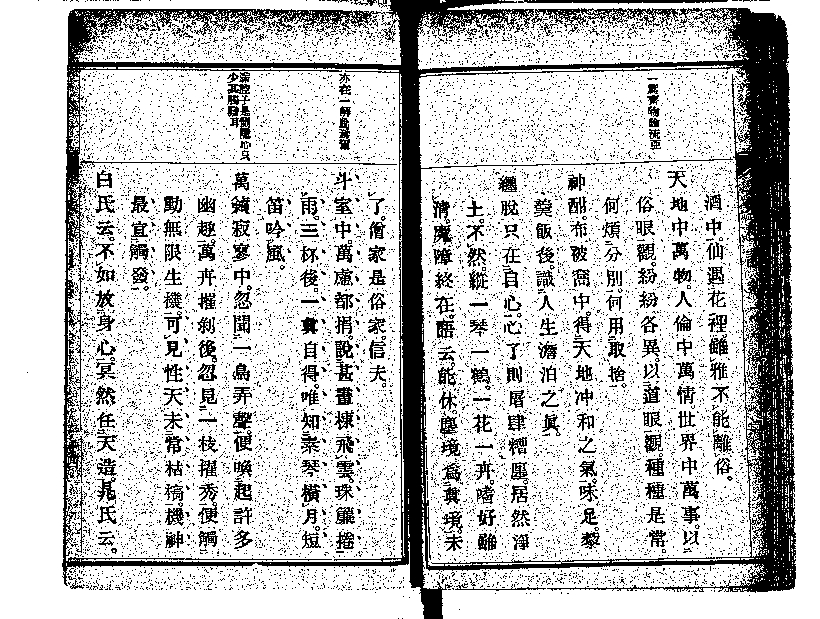 一篇齊物論流亞
酒中仙遇花裡雖雅不能離俗。
天地中萬物。人倫中萬情世界中萬事。以
俗眼觀。紛紛各異以道眼觀。種種是常。
何煩分別。何用取捨。
神酣。布被窩中。得天地冲和之氣。味足。藜
羹飯後。識人生澹泊之眞。
纏脫只在自心。心了則屠肆糟廛。居然淨
土。不然。縱一琴一鶴。一花一卉。嗜好雖
清。魔障終在。語云。能休。塵境爲眞境。未
滿腔子是惻隱心只
少其觸發耳
了。僧家是俗家。信夫。
斗室中萬慮都捐。說甚畫棟飛雲。珠簾捲
雨。三杯後。一眞自得。唯知素琴橫月。短
笛吟風。
萬籟寂寥中。忽聞一鳥弄聲便喚起許多
幽趣。萬卉摧剝後。忽見一枝擢秀便觸
動無限生機。可見性天未常枯槁機神
最宜觸發。
白氏云。不如放身心。冥然任天造。晁氏云。